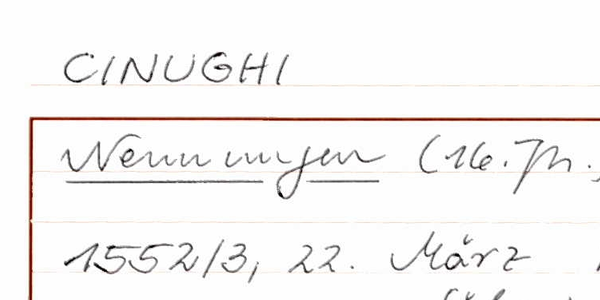 CINUGHI
Nennungen (16. Jh.)
1552/3, 22. März